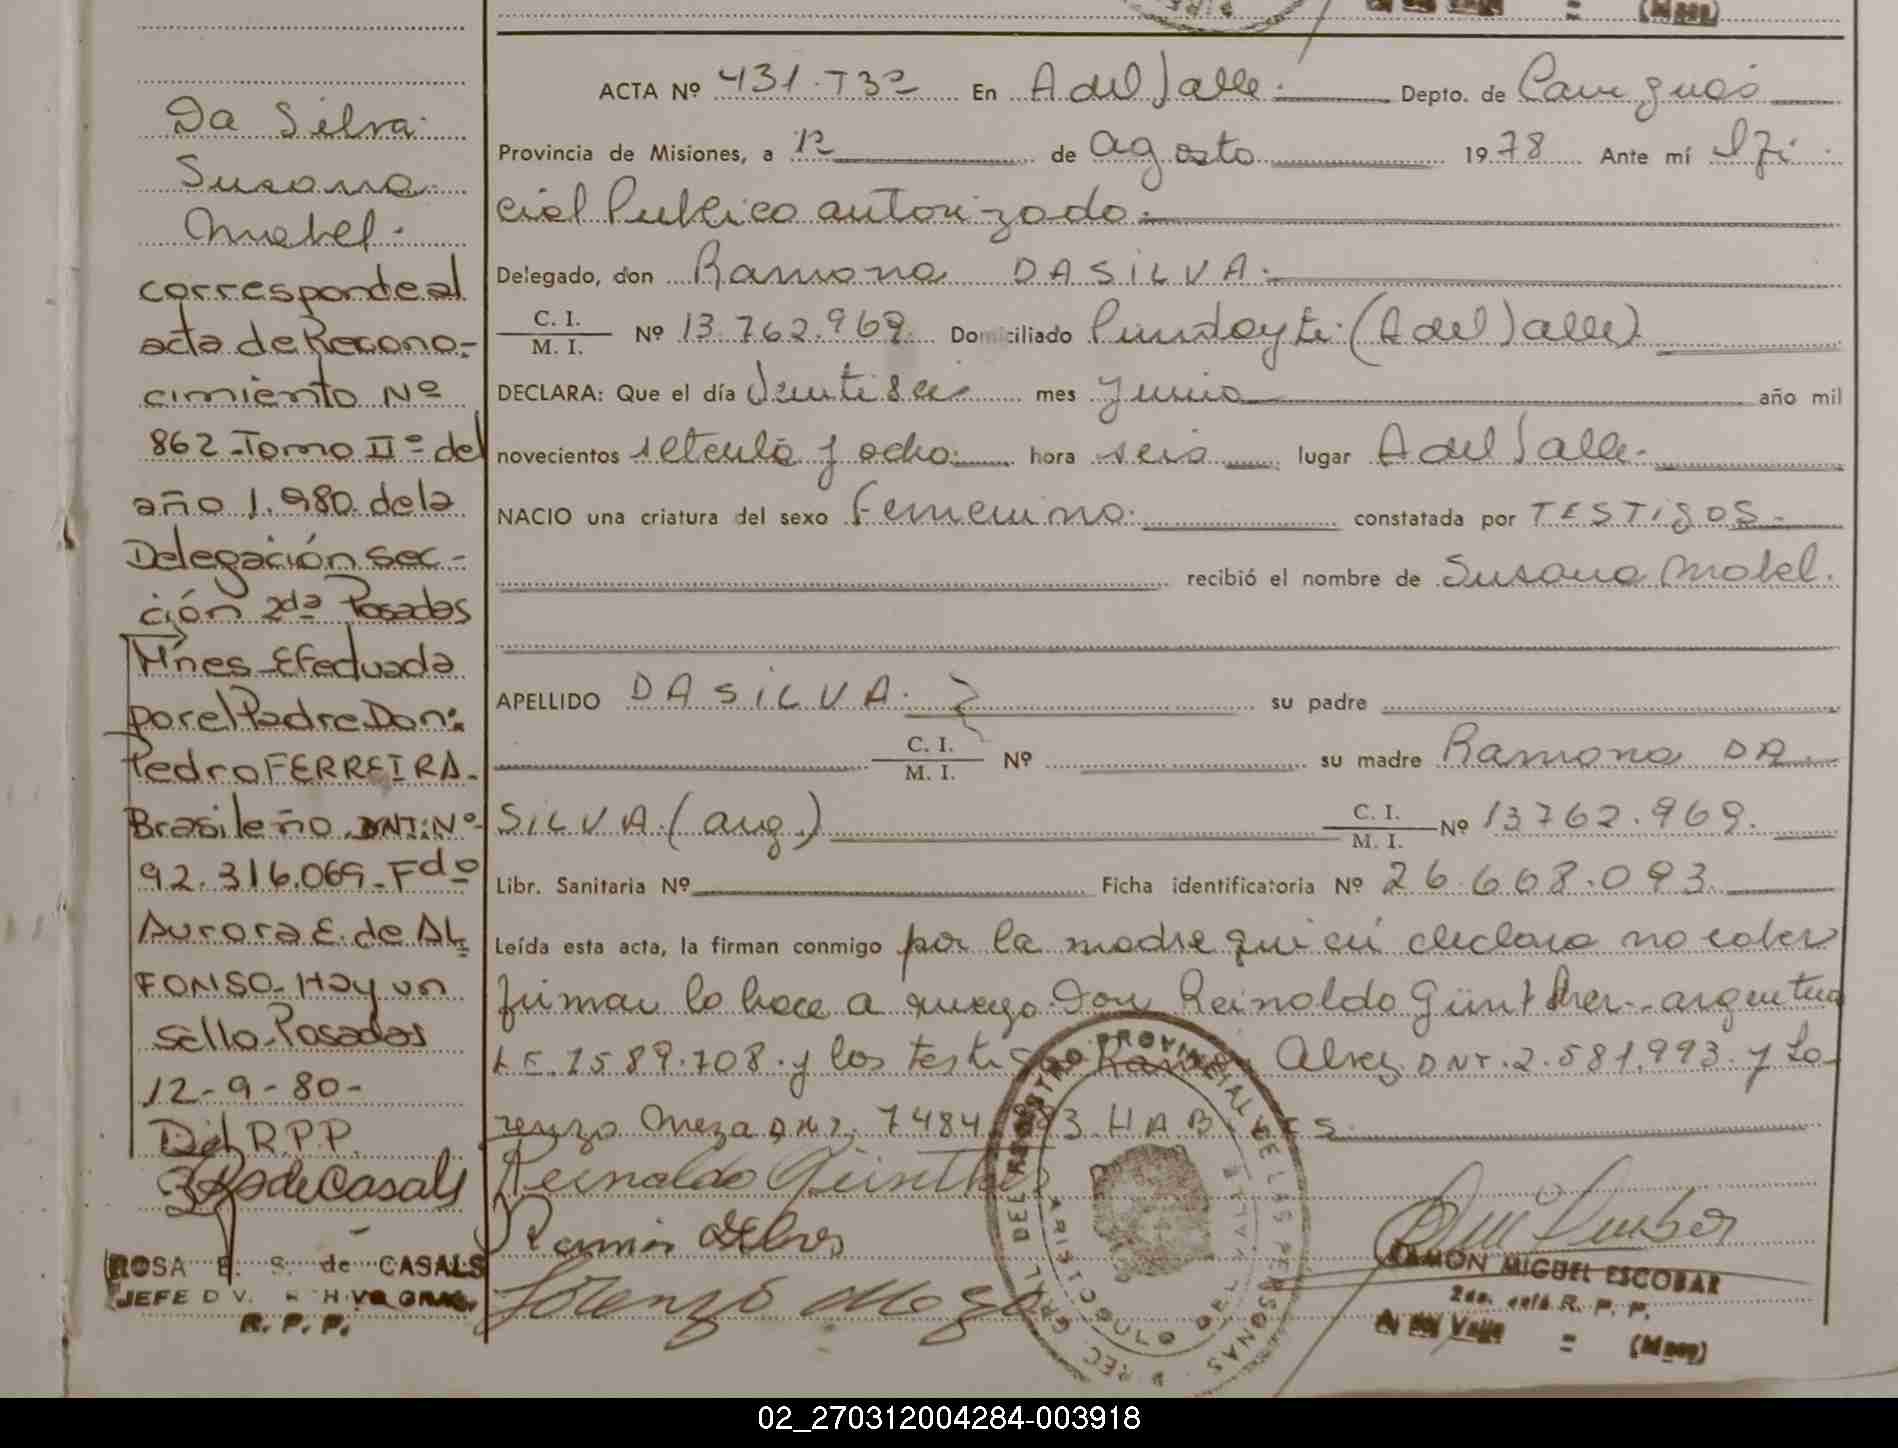 Da Silva
Susana
Mabel.
corresponde al
acta de Recono-
cimiento Nº
862 - Tomo IIº del
año 1.980 dela
Delegación Sec-
ción 2da Posadas
Mnes - Efectuada
por el Padre Don:
Pedro FERREIRA.
Brasileño DNI: Nº
92.316.069 - Fdo
Aurora E. de AL
FONSO - Hay un
sello - Posadas
12-9-80-
R.P.P.
de Casals
ROSA E. S. de CASALS
JEFE DIV. ARCHIVO GRAL.
R. P. P.
(Mnes)
ACTA Nº 431. T3º En A del Valle. Depto. de Cainguás
Provincia de Misiones, a 12 de agosto 1978 Ante mí Ofi
cial Publico autorizado.
Delegado, don Ramona DASILVA.
C. I. / M. I. Nº 13.762.969. Domiciliado Pindayti (A del Valle)
DECLARA: Que el día Veintiseis mes Junio año mil
novecientos setenta y ocho. hora seis lugar A del Valle.
NACIO una criatura del sexo Femenino. constatada por TESTIGOS.
recibió el nombre de Susana Mabel.
APELLIDO DASILVA. su padre
C. I. / M. I. Nº su madre Ramona DA
SILVA. (arg.) C. I. / M. I. Nº 13762.969.
Libr. Sanitaria Nº Ficha identificatoria Nº 26.668.093.
Leída esta acta, la firman conmigo por la madre quien declara no saber
firmar lo hace a ruego Don Reinaldo Günther - argentino
L.E. 7589.708. y los testigos Ramón Alvez DNI. 2.581.993. y Lo-
renzo Meza DNI. 7484 3 HABILES.
Reinaldo Günther
Ramón
Lorenzo Meza
DEL REGISTRO PROVINCIAL DE LAS PERSONAS
ARISTOBULO DEL VALLE
RAMON MIGUEL ESCOBAR
R. P. P.
A. del Valle = (Mnes)
02_270312004284-003918